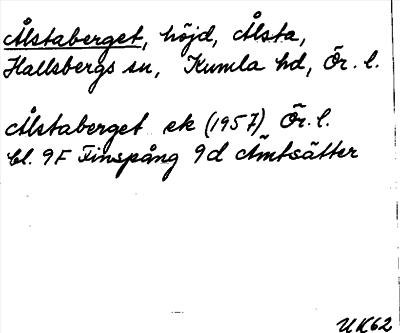 Ålstaberget, höjd, Ålsta,
Hallsbergs sn, Kumla hd, Ör. l.
Ålstaberget ek (1957) Ör. l.
bl. 9F Finspång 9d Åmtsätter
UK62